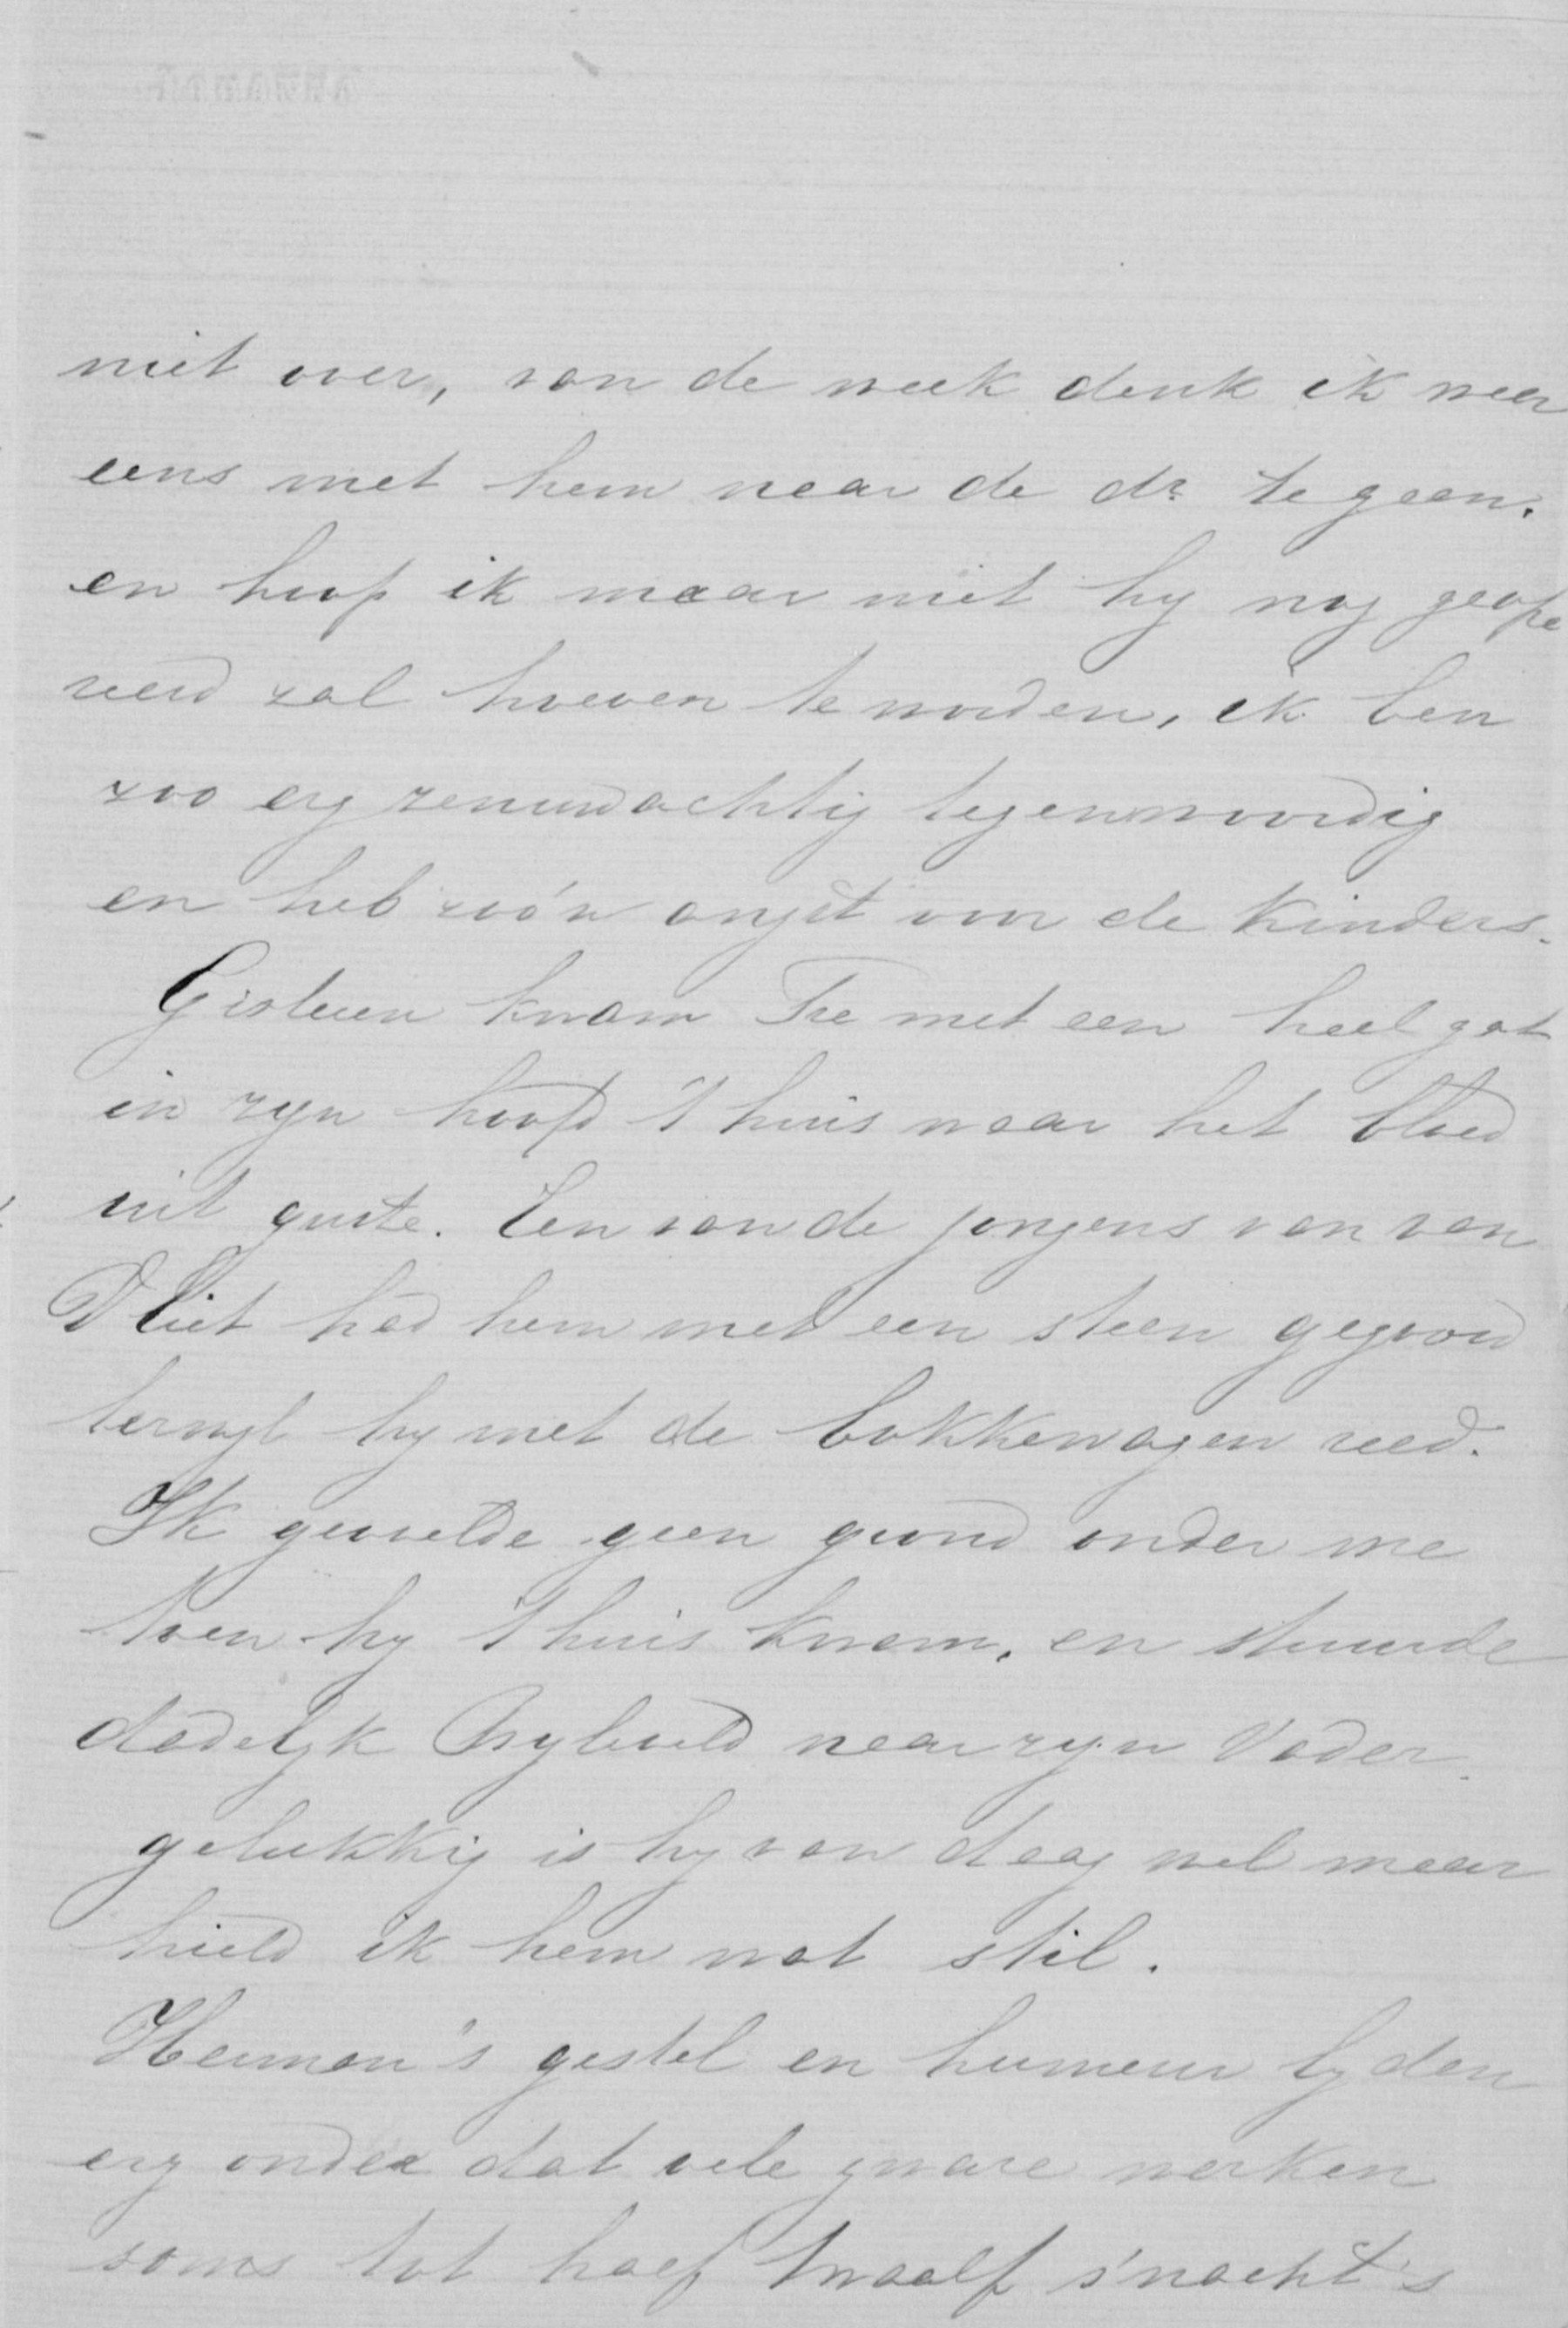 niet over, van de week denk ik weer
eens met hem naar de dr. te gaan.
en hoop ik maar niet hy nog geope
reerd zal hoeven te worden, ik ben
zoo erg zenuwachtig tegenwoordig
en heb zoo'n angst voor de kinders.
Gisteren kwam Fre met een heel gat
in zyn hoofd t'huis waar het bloed
uit guste. Een van de jongens van van
Vliet had hem met een steen gegooid
terwyl hy met de bokkenwagen reed.
Ik gevoelde geen grond onder me
toen hy t'huis kwam, en stuurde
dadelyk naar zyn Vader.
gelukkig is hy van daag wel maar
hield ik hem wat stil.
Herman's gestel en humeur lyden
erg onder dat vele zware werken
soms tot half twaalf s'nacht's